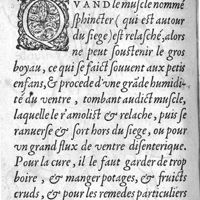 QVAND le muscle nommé
sphincter (qui est autour
du siege) est relasché, alors
ne peut soustenir le gros
boyau, ce qui se faict souuent aux petis
enfans, & procede d'vne grãde humidi-
té du ventre, tombant audict muscle,
laquelle le r'amolist & relache, puis se
ranuerse & sort hors du siege, ou pour
vn grand flux de ventre disenterique.
Pour la cure, il le faut garder de trop
boire, & manger potages, & fruicts
cruds, & pour les remedes particuliers